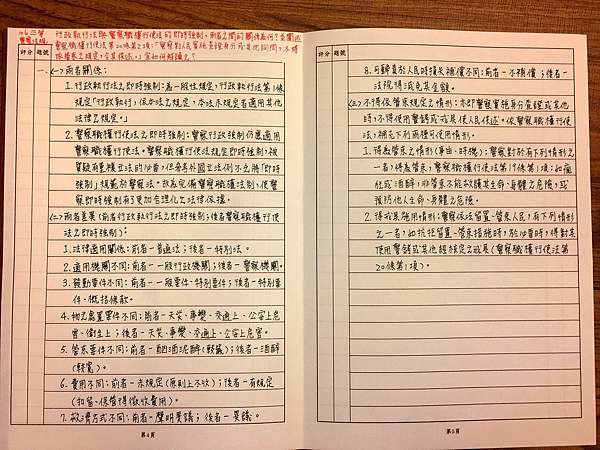 106三等
警察法規
行政執行法與警察職權行使法的即時強制,兩者之間的關係為何?並闡述
警察職權行使法第20條第2項:「警察對人實施查證身分或其他詢問,不得
依管束之規定,令其供述。」當如何解讀之?
評分 題號
一、(一)兩者關係:
1. 行政執行法之即時強制:為一般性規定,行政執行法第1條
規定「行政執行,依本法之規定,本法未規定者適用其他
法律之規定。」
2. 警察職權行使法之即時強制:警察行政強制仍應適用
警察職權行使法。警察職權行使法規定即時強制,被
質疑有重複立法的必要,但參考外國立法例不乏將「即時
強制」規範於警察法。故為完備警察職權法制,使警
察即時強制有了更加合理化之法律依據。
(二)兩者差異(前者行政執行法之即時強制;後者警察職權行使
法之即時強制):
1. 法律適用關係:前者-普通法;後者-特別法。
2. 適用機關不同:前者-一般行政機關;後者-警察機關。
3. 發動要件不同:前者-一般要件、特別要件;後者-特別要
件、概括條款。
4. 物之處置要件不同:前者-天災、事變、交通上、公安上危
害、衛生上;後者-天災、事變、交通上、公安上危害。
5. 管束要件不同:前者-酗酒泥醉(較嚴);後者-酒醉
(較寬)。
6. 費用不同:前者-未規定(原則上不收);後者-有規定
(扣留、保管得徵收費用)。
7. 救濟方式不同:前者-聲明異議;後者-異議。
第4頁
評分 題號
8. 可歸責於人民時損失補償不同:前者-不補償;後者-
法院得減免其金額。
(三)不得依管束規定之情形:亦即警察實施身分查證或其他
時,不得使用警銬或戒具使人民供述。依警察職權行使
法,補充下列兩種可使用情形。
1. 得為管束之情形(事由、時機):警察對於有下列情形之
一者,得為管束,警察職權行使法第19條第1項:如瘋
狂或酒醉,非管束不能救護其生命、身體之危險,或
預防他人生命、身體之危險。
2. 得戒具施用情形:警察依法留置、管束人民,有下列情形
之一者,如抗拒留置、管束措施時,於必要時,得對其
使用警銬或其他經核定之戒具(警察職權行使法第
20條第1項)。
第5頁